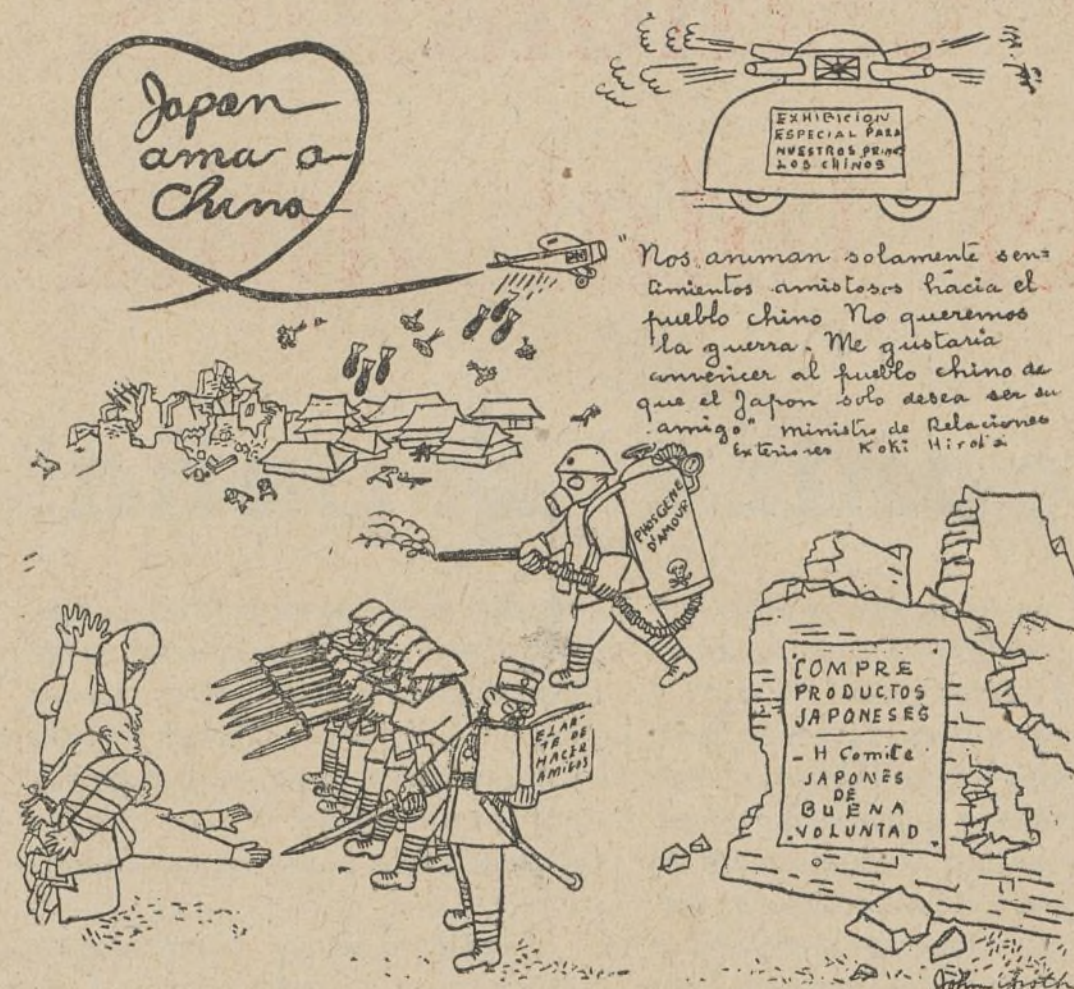 Japon
ama a
China
EXHIBICION
ESPECIAL PARA
NUESTROS PRIMOS
LOS CHINOS
"Nos animan solamente sen=
timientos amistosos hacia el
pueblo chino No queremos
la guerra. Me gustaria
convencer al pueblo chino de
que el Japon solo desea ser su
amigo" Ministro de Relaciones
Exteriores Koki Hirota
PHOSGENE
D'AMOUR
EL AR-
TE DE
HACER
AMIGOS
COMPRE
PRODUCTOS
JAPONESES
- H Comite
JAPONÉS
DE
BUENA
VOLUNTAD
John Groth